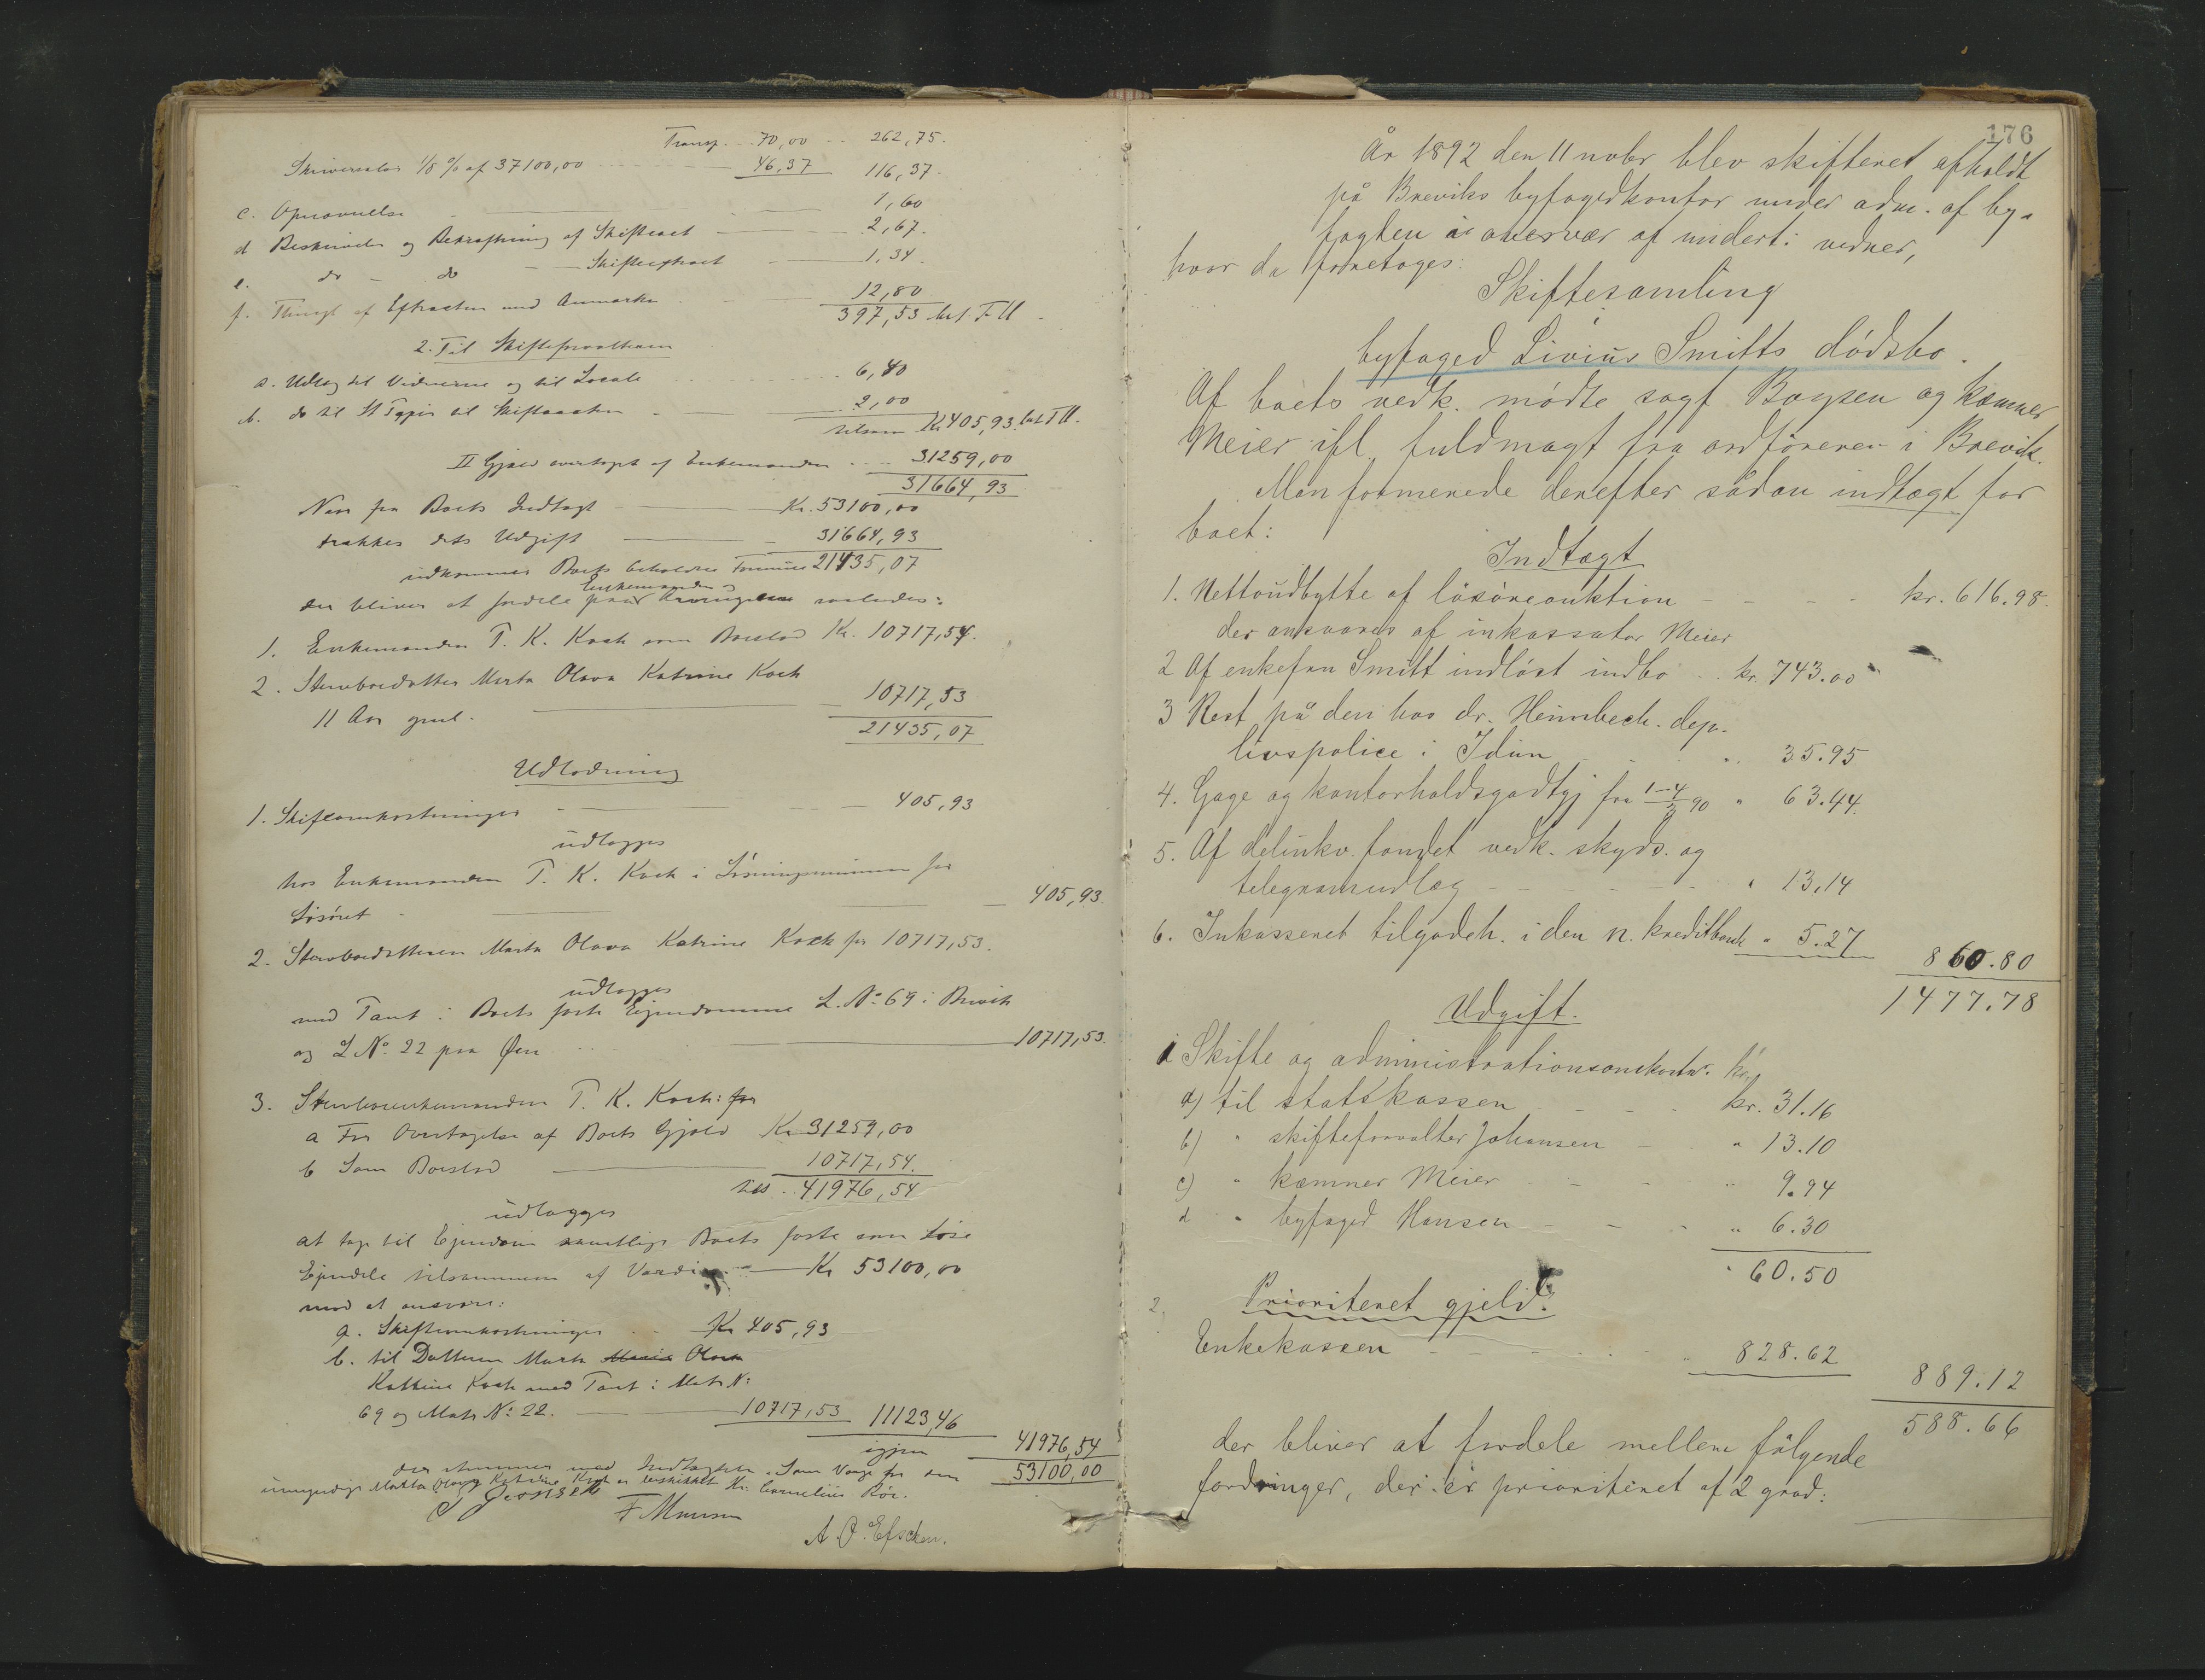 Transp. 70,00 262,75.
Skriversalær 1/8 % af 37100,00 46,37 116,37.
c. 1,60
d Beskrivelse og Bekræftning af Skifteact 2,67.
e. do - do - Skifteextract 1,34.
f. af Extracten med 12,80
397,53
2. Til Skifteforvalteren
a. Udlæg til Vidnerne og til Locale 6,40
b. do til St Papir til Skifteacten 2,00
tilsam Kr 405,93.
II Gjæld overtaget af Enkemanden 31259,00
31664,93
Naar fra Boets Indtægt Kr. 53100,00
trækkes dets Udgift 31664,93
udkommer Boets beholdne Formue 21435,07
Enkemanden og
der bliver at fordele paa Arvingerne saaledes:
1. Enkemanden T. K. Koch som Boeslod Kr. 10717,54.
2. Stervbodatter Marta Olava Katrine Koch
11 Aar gml. 10717,53
21435,07
Udlodning
1. Skifteomkostninger 405,93
udlægges
hos Enkemanden T. K. Koch i Løsningssummen for
Løsøret 405,93.
2. Stervbodatteren Marta Olava Katrine Koch for 10717,53.
udlægges
med Pant i Boets faste Ejendomme L. No 69 i Brevik
og L No. 22 paa Øen 10717,53.
3. Stervboenkemanden T. K. Koch: for
a For Overtagelse af Boets Gjæld Kr 31259,00
b Som Boeslod 10717,54.
tils. 41976,54
udlægges
at tage til Ejendom samtlige Boets faste som løse
Ejendele tilsammen af Værdi Kr 53100,00
mod at ansvare:
a. Skifteomkostninger Kr 405,93
b. til Datteren Marta Olava
Kathrine Koch med Pant i Matr N:
69 og Matr No: 22. 10717,53 11123,46
igjen 41976,54
der stemmer med Indtægten. Som Værge for den 53100,00
umyndige Martha Olava Katrine Koch er beskikket Hr. Cornelius Röe.
F Monsen
176
År 1892 den 11 novbr blev skifteret afholdt
på Breviks byfogedkontor under adm. af by-
fogden i overvær af undert: vidner,
hvor da foretoges:
Skiftesamling
byfoged Livius Smitts dödsbo.
Af boets vedk. mödte sagf Boysen og kæmner
Meier ifl. fuldmagt fra ordföreren i Brevik.
Man formerede derefter sådan indtægt for
boet:
Indtægt
1. Nettoudbytte af lösöreauktion kr. 616.98.
der ansvares af inkassator Meier
2 Af enkefru Smitt indlöst indbo kr. 743.00
3 Rest på den hos dr. Heimbeck dep.
livspolice i Idun " 35.95
4. Gage og kontorholdsgodtgj fra 1-4/3 90 " 63.44.
5. Af delinkv. fondet vedk. skyds. og
telegramudlæg " 13,14
6. Inkasseret tilgodeh. i den n. kreditbank " 5.27 860.80
1477.78
Udgift.
1 Skifte og administrationsomkostn.
a) til statskassen kr. 31.16
b) " skifteforvalter Johansen " 13.10
c) " kæmner Meier " 9.94
d " byfoged Hansen " 6.30
" 60.50
2. Prioriteret gjeld:
Enkekassen " 828.62 889.12
588.66
der bliver at fordele mellem fölgende
fordringer, der er prioriteret af 2 grad: